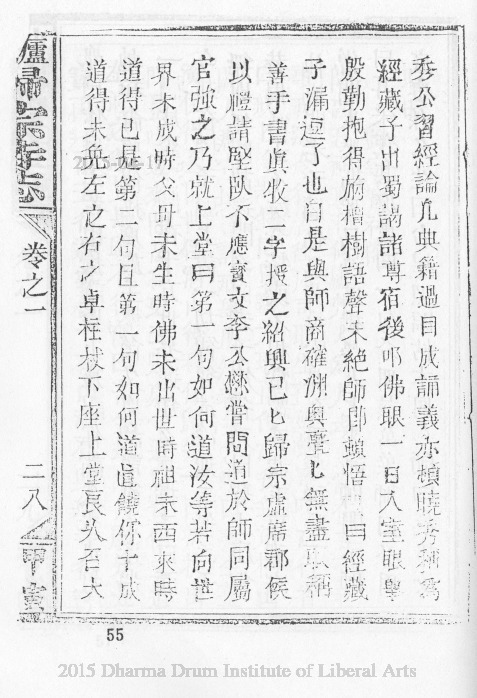 秀公習經論凡典籍過目成誦義亦頓曉秀稱為
經藏子出蜀謁諸尊宿後叩佛眼一日入室眼舉
殷勤抱得旃檀樹語聲未絕師即頓悟眼曰經藏
子漏逗了也自是與師商確淵奧亹亹無盡眼稱
善手書真牧二字授之紹興已巳歸宗虛席郡侯
以禮請堅臥不應寶文李公懋嘗問道於師同屬
官強之乃就上堂曰第一句如何道汝等若向世
界未成時父母未生時佛未出世時祖未西來時
道得已是第二句且第一句如何道直饒你十成
道得未免左之右之卓柱杖下座上堂良久召大
廬歸宗寺志
卷之一
二八
甲寅
55
2015 Dharma Drum Institute of Liberal Arts